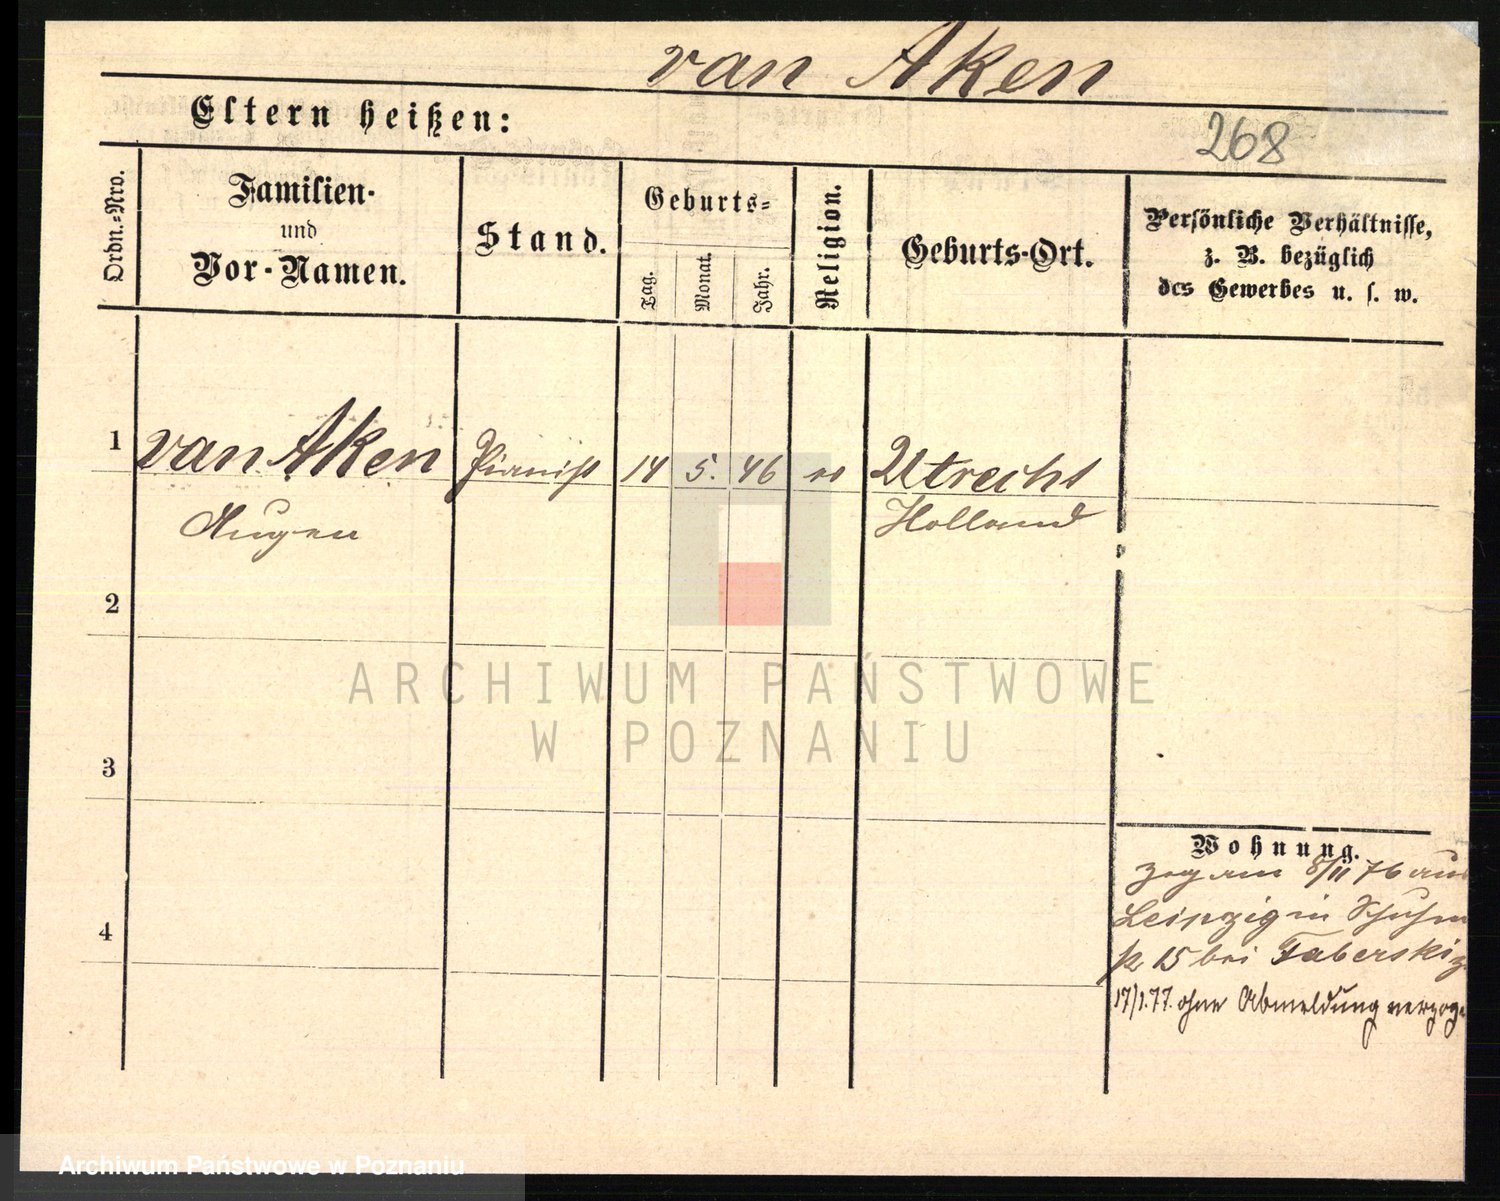 van Aken
Eltern heißen:
268
Ordn.=Nro.
Familien-
und
Vor-Namen.
Stand.
Geburts=
Tag.
Monat.
Jahr.
Religion.
Geburts-Ort.
Persönliche Verhältnisse,
z. B. bezüglich
des Gewerbes u. s. w.
1
van Aken Pianist 14 5. 46 Utrecht
Augen
Holland
2
ARCHIWUM PAŃSTWOWE
W POZNANIU
3
Wohnung.
zog am 8/11 76 aus
Leipzig in Schuhm
4
15 bei Taberski
17/1.77. ohne Abmeldung verzoge
Archiwum Państwowe w Poznaniu